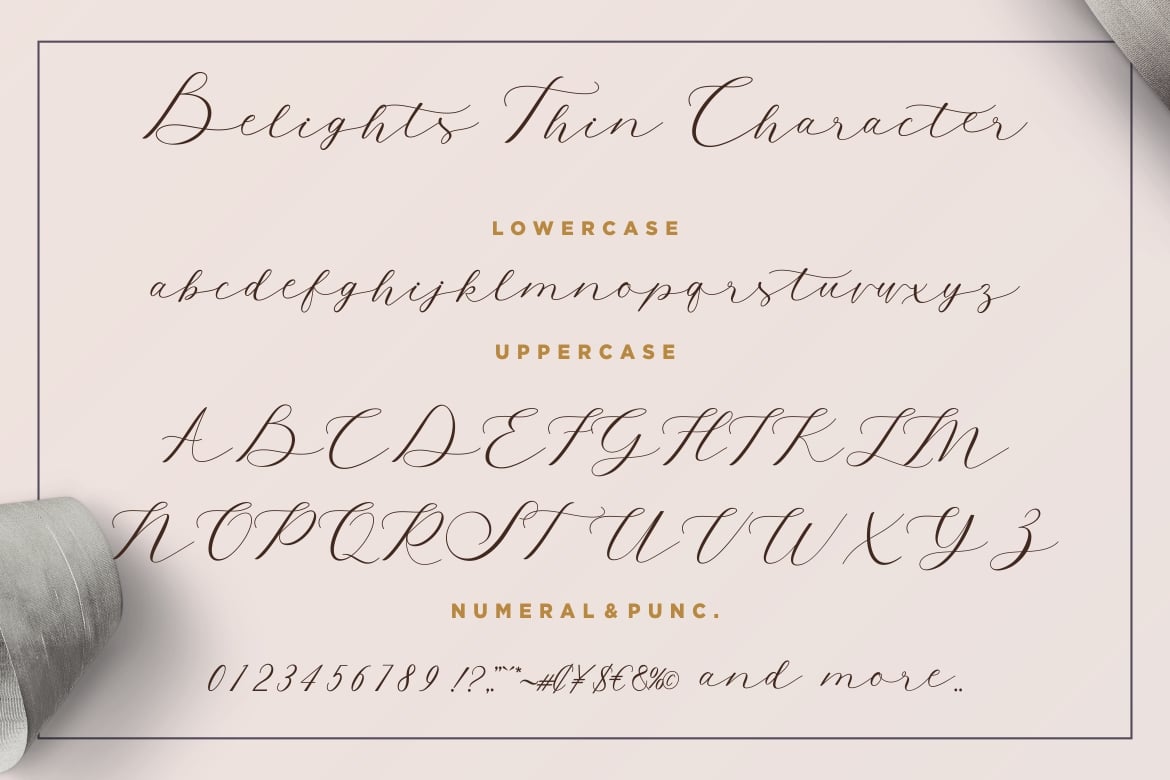 Belights Thin Character
LOWERCASE
abcdefghijklmnopqrstuvwxyz
UPPERCASE
ABCDEFGHIJKLM
NOPQRSTUVWXYZ
NUMERAL&PUNC.
0123456789 !?,:"“`´*~#₡¥$€&%© and more..